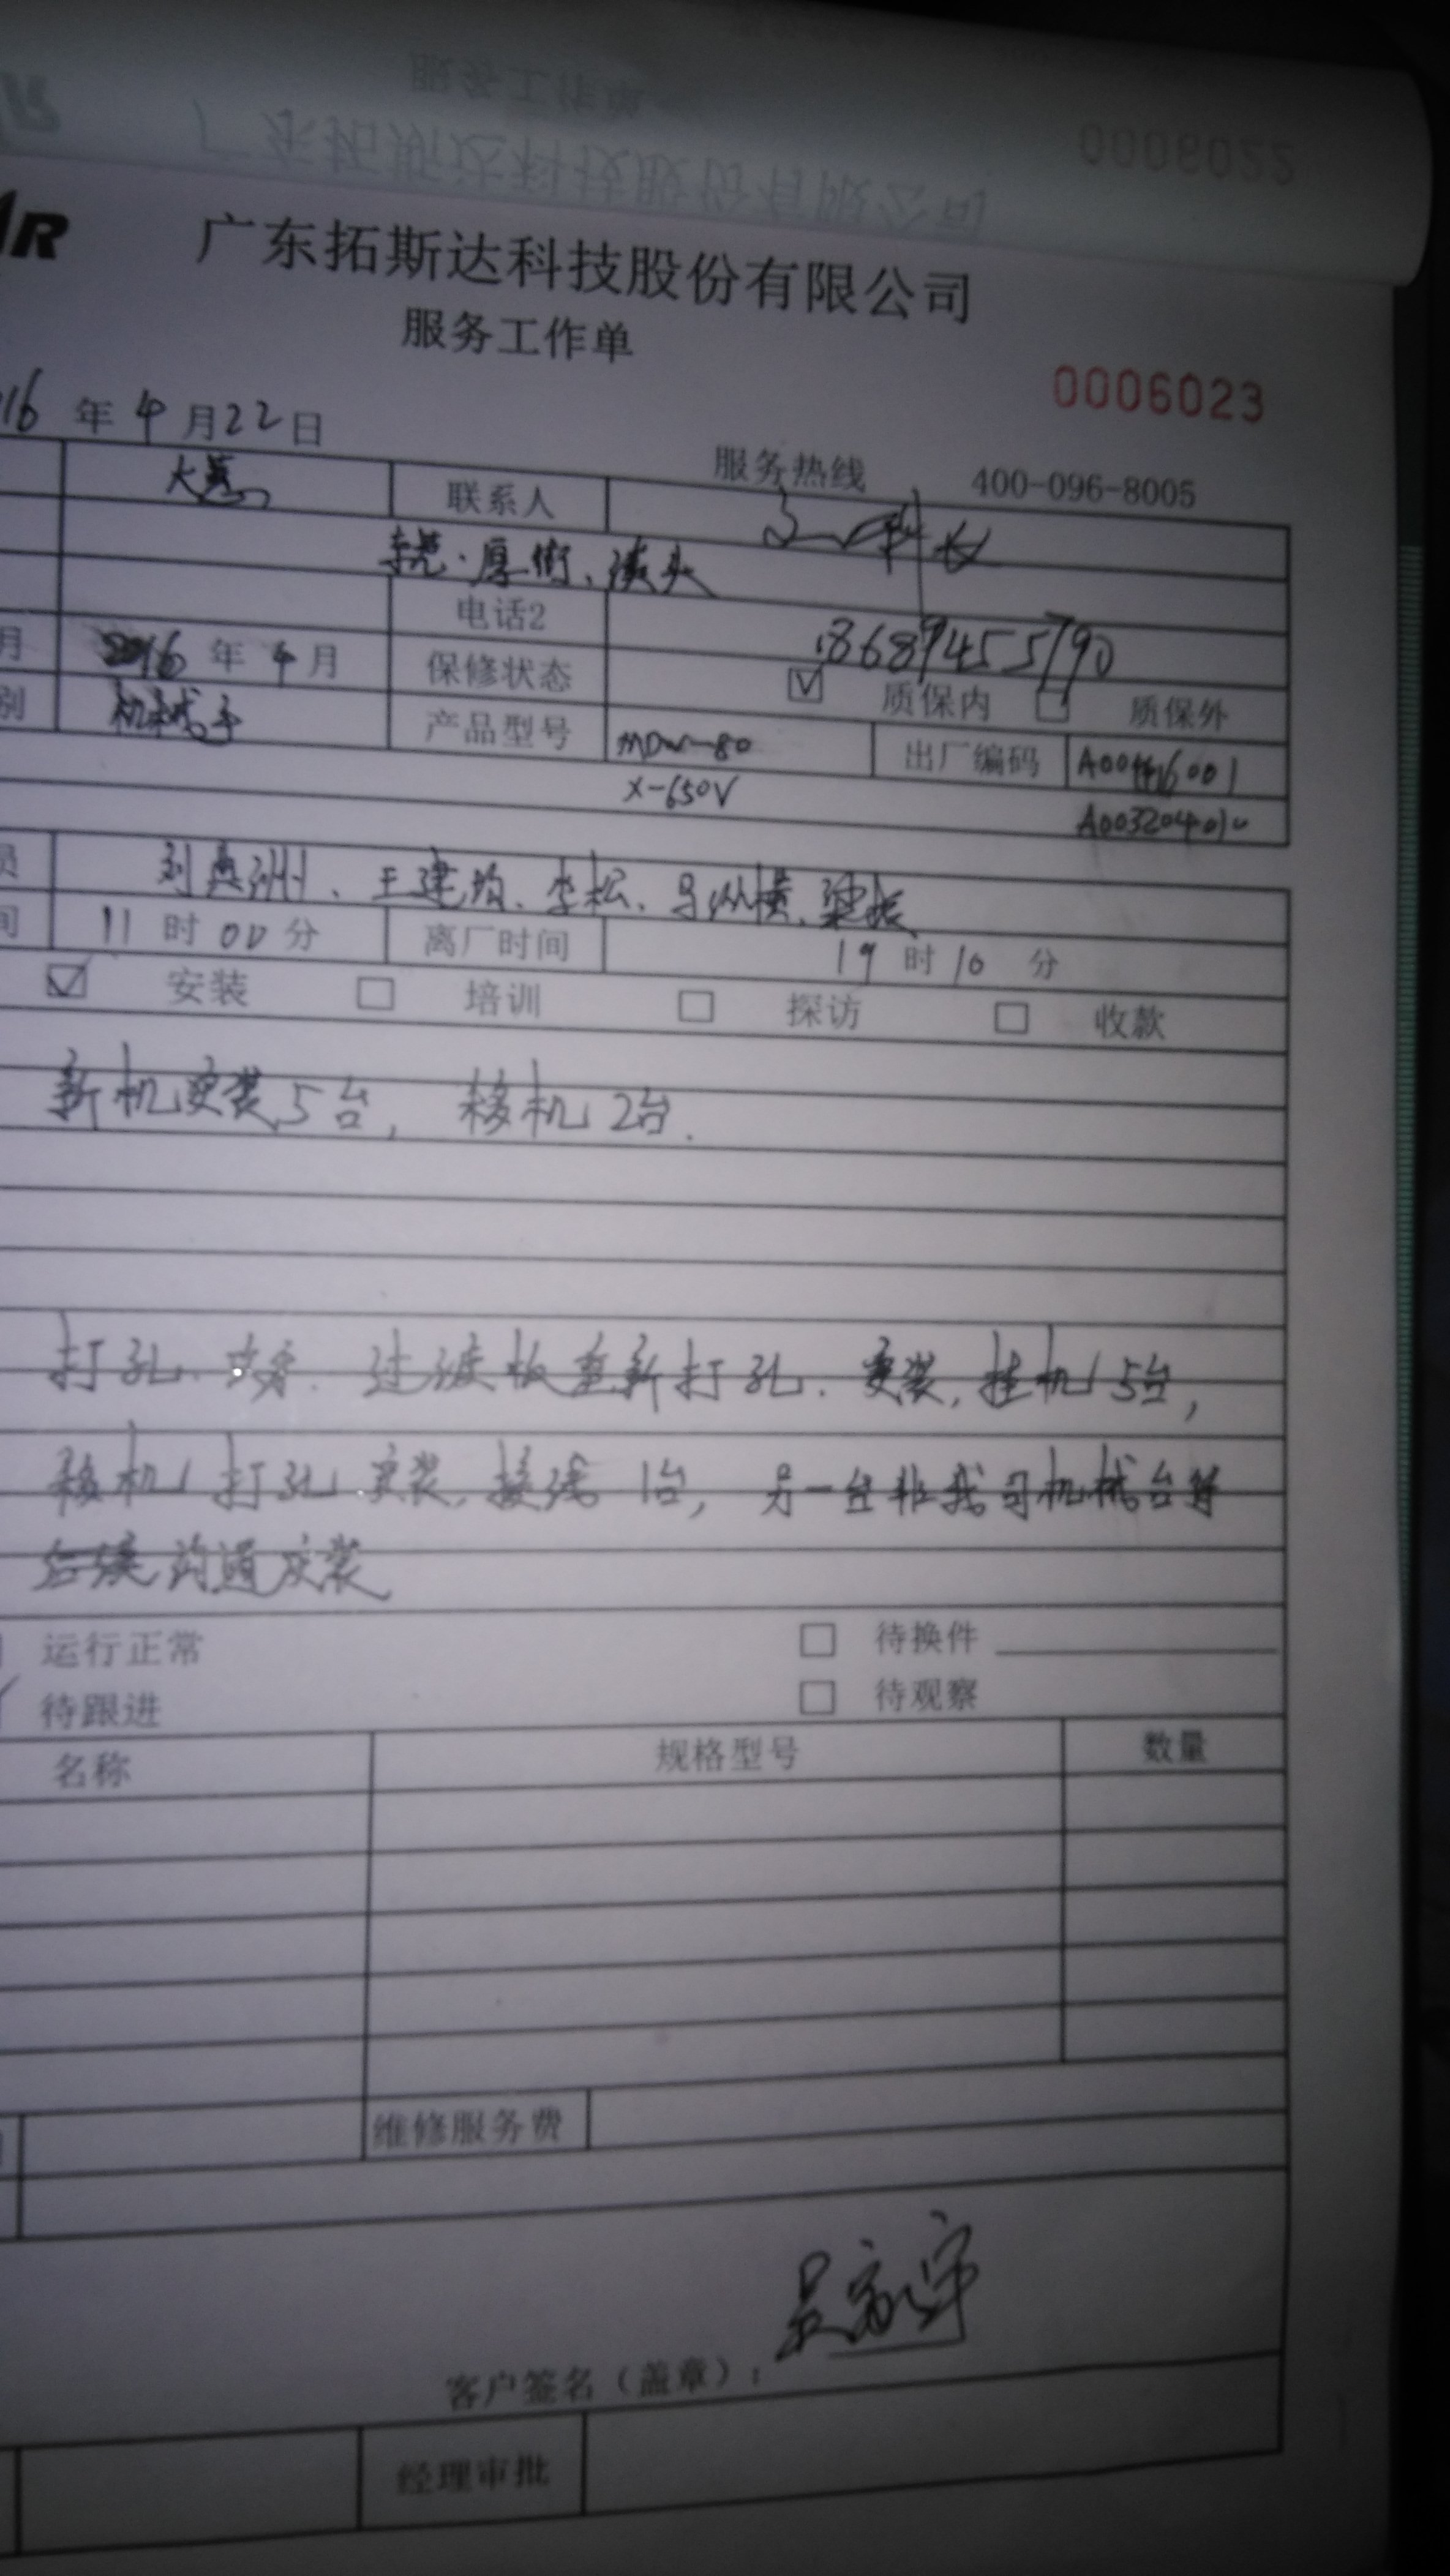 服务工作单
广东拓斯达科技股份有限公司
0006022
AR 广东拓斯达科技股份有限公司
服务工作单
0006023
16 年 4 月 22 日
服务热线 400-096-8005
联系人 科长
厚街
电话2 18689455790
月 2016 年 4 月 保修状态 质保内 质保外
别 机械手 产品型号 MDW-80 出厂编码
X-650V
员 王建均、李松、
间 11 时 00 分 离厂时间 19 时 10 分
安装 培训 探访 收款
新机安装5台, 移机2台.
打孔. 攻牙. 过渡板重新打孔. 安装, 挂机5台,
移机 打孔 安装, 接线 1台, 另一台非我司机械台等
后续沟通安装
运行正常 待换件
待跟进 待观察
名称 规格型号 数量
维修服务费
客户签名(盖章):
经理审批